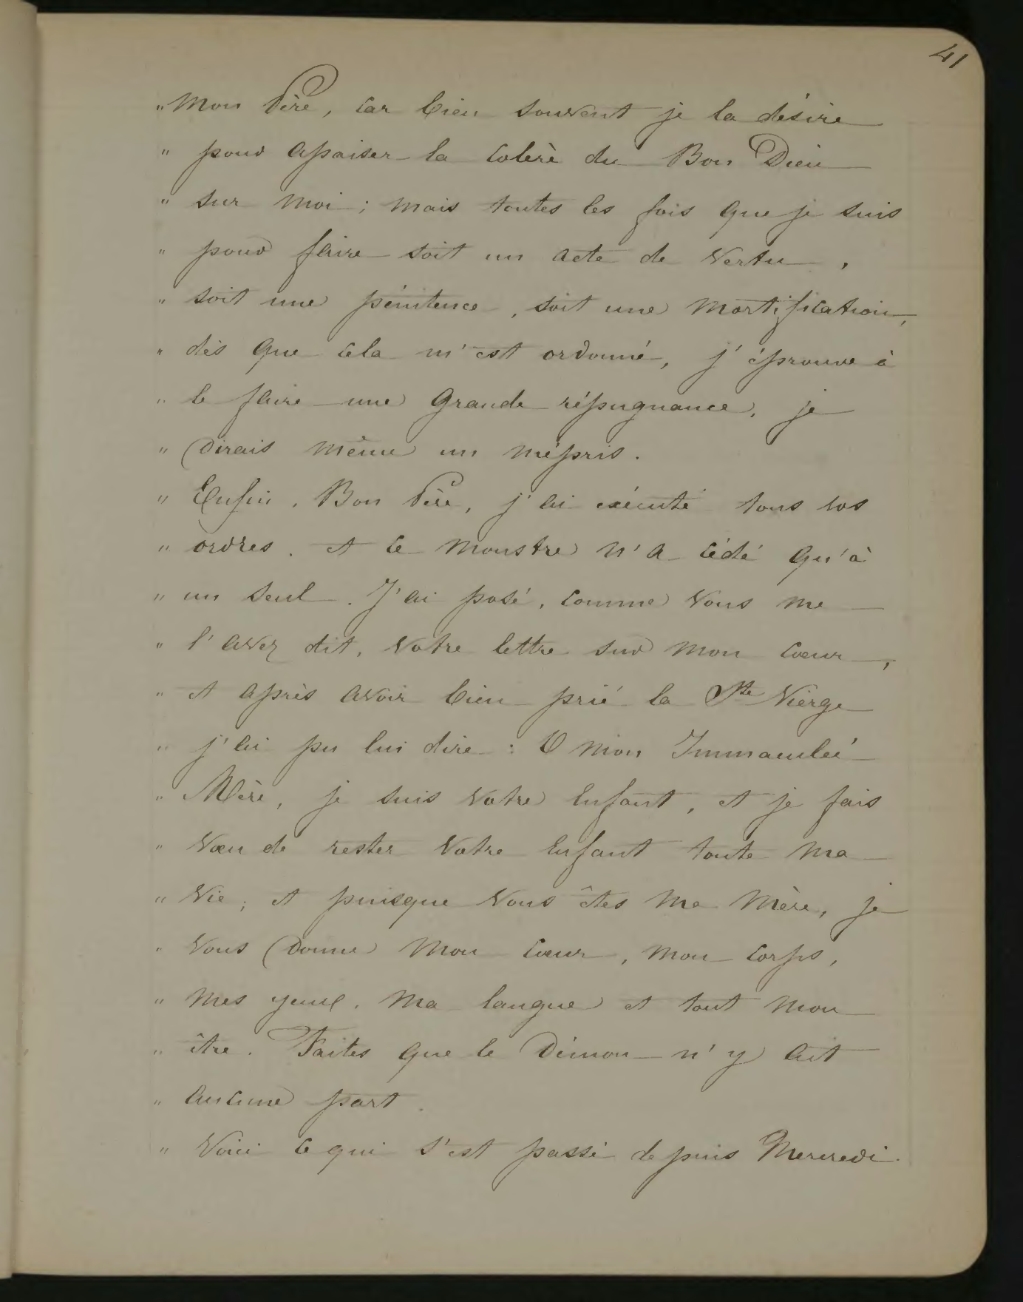 41
" Mon Père, car bien souvent je la désire
" pour apaiser la colère du Bon Dieu
" sur moi ; mais toutes les fois que je suis
" pour faire soit un acte de vertu,
" soit une pénitence, soit une mortification,
" dès que cela m'est ordonné, j'éprouve à
" le faire une grande répugnance, je
" dirais même un mépris.
" Enfin, Bon Père, j'ai exécuté tous vos
" ordres, et le monstre n'a cédé qu'à
" un seul. J'ai posé, comme vous me
" l'avez dit, votre lettre sur mon cœur,
" et après avoir bien prié la Ste Vierge
" j'ai pu lui dire : O mon Immaculée
" Mère, je suis votre Enfant, et je fais
" vœu de rester votre Enfant toute ma
" vie ; et puisque vous êtes ma Mère, je
" vous donne mon cœur, mon corps,
" mes yeux, ma langue et tout mon
" être. Faites que le Démon n'y ait
" aucune part.
" Voici ce qui s'est passé depuis Mercredi.